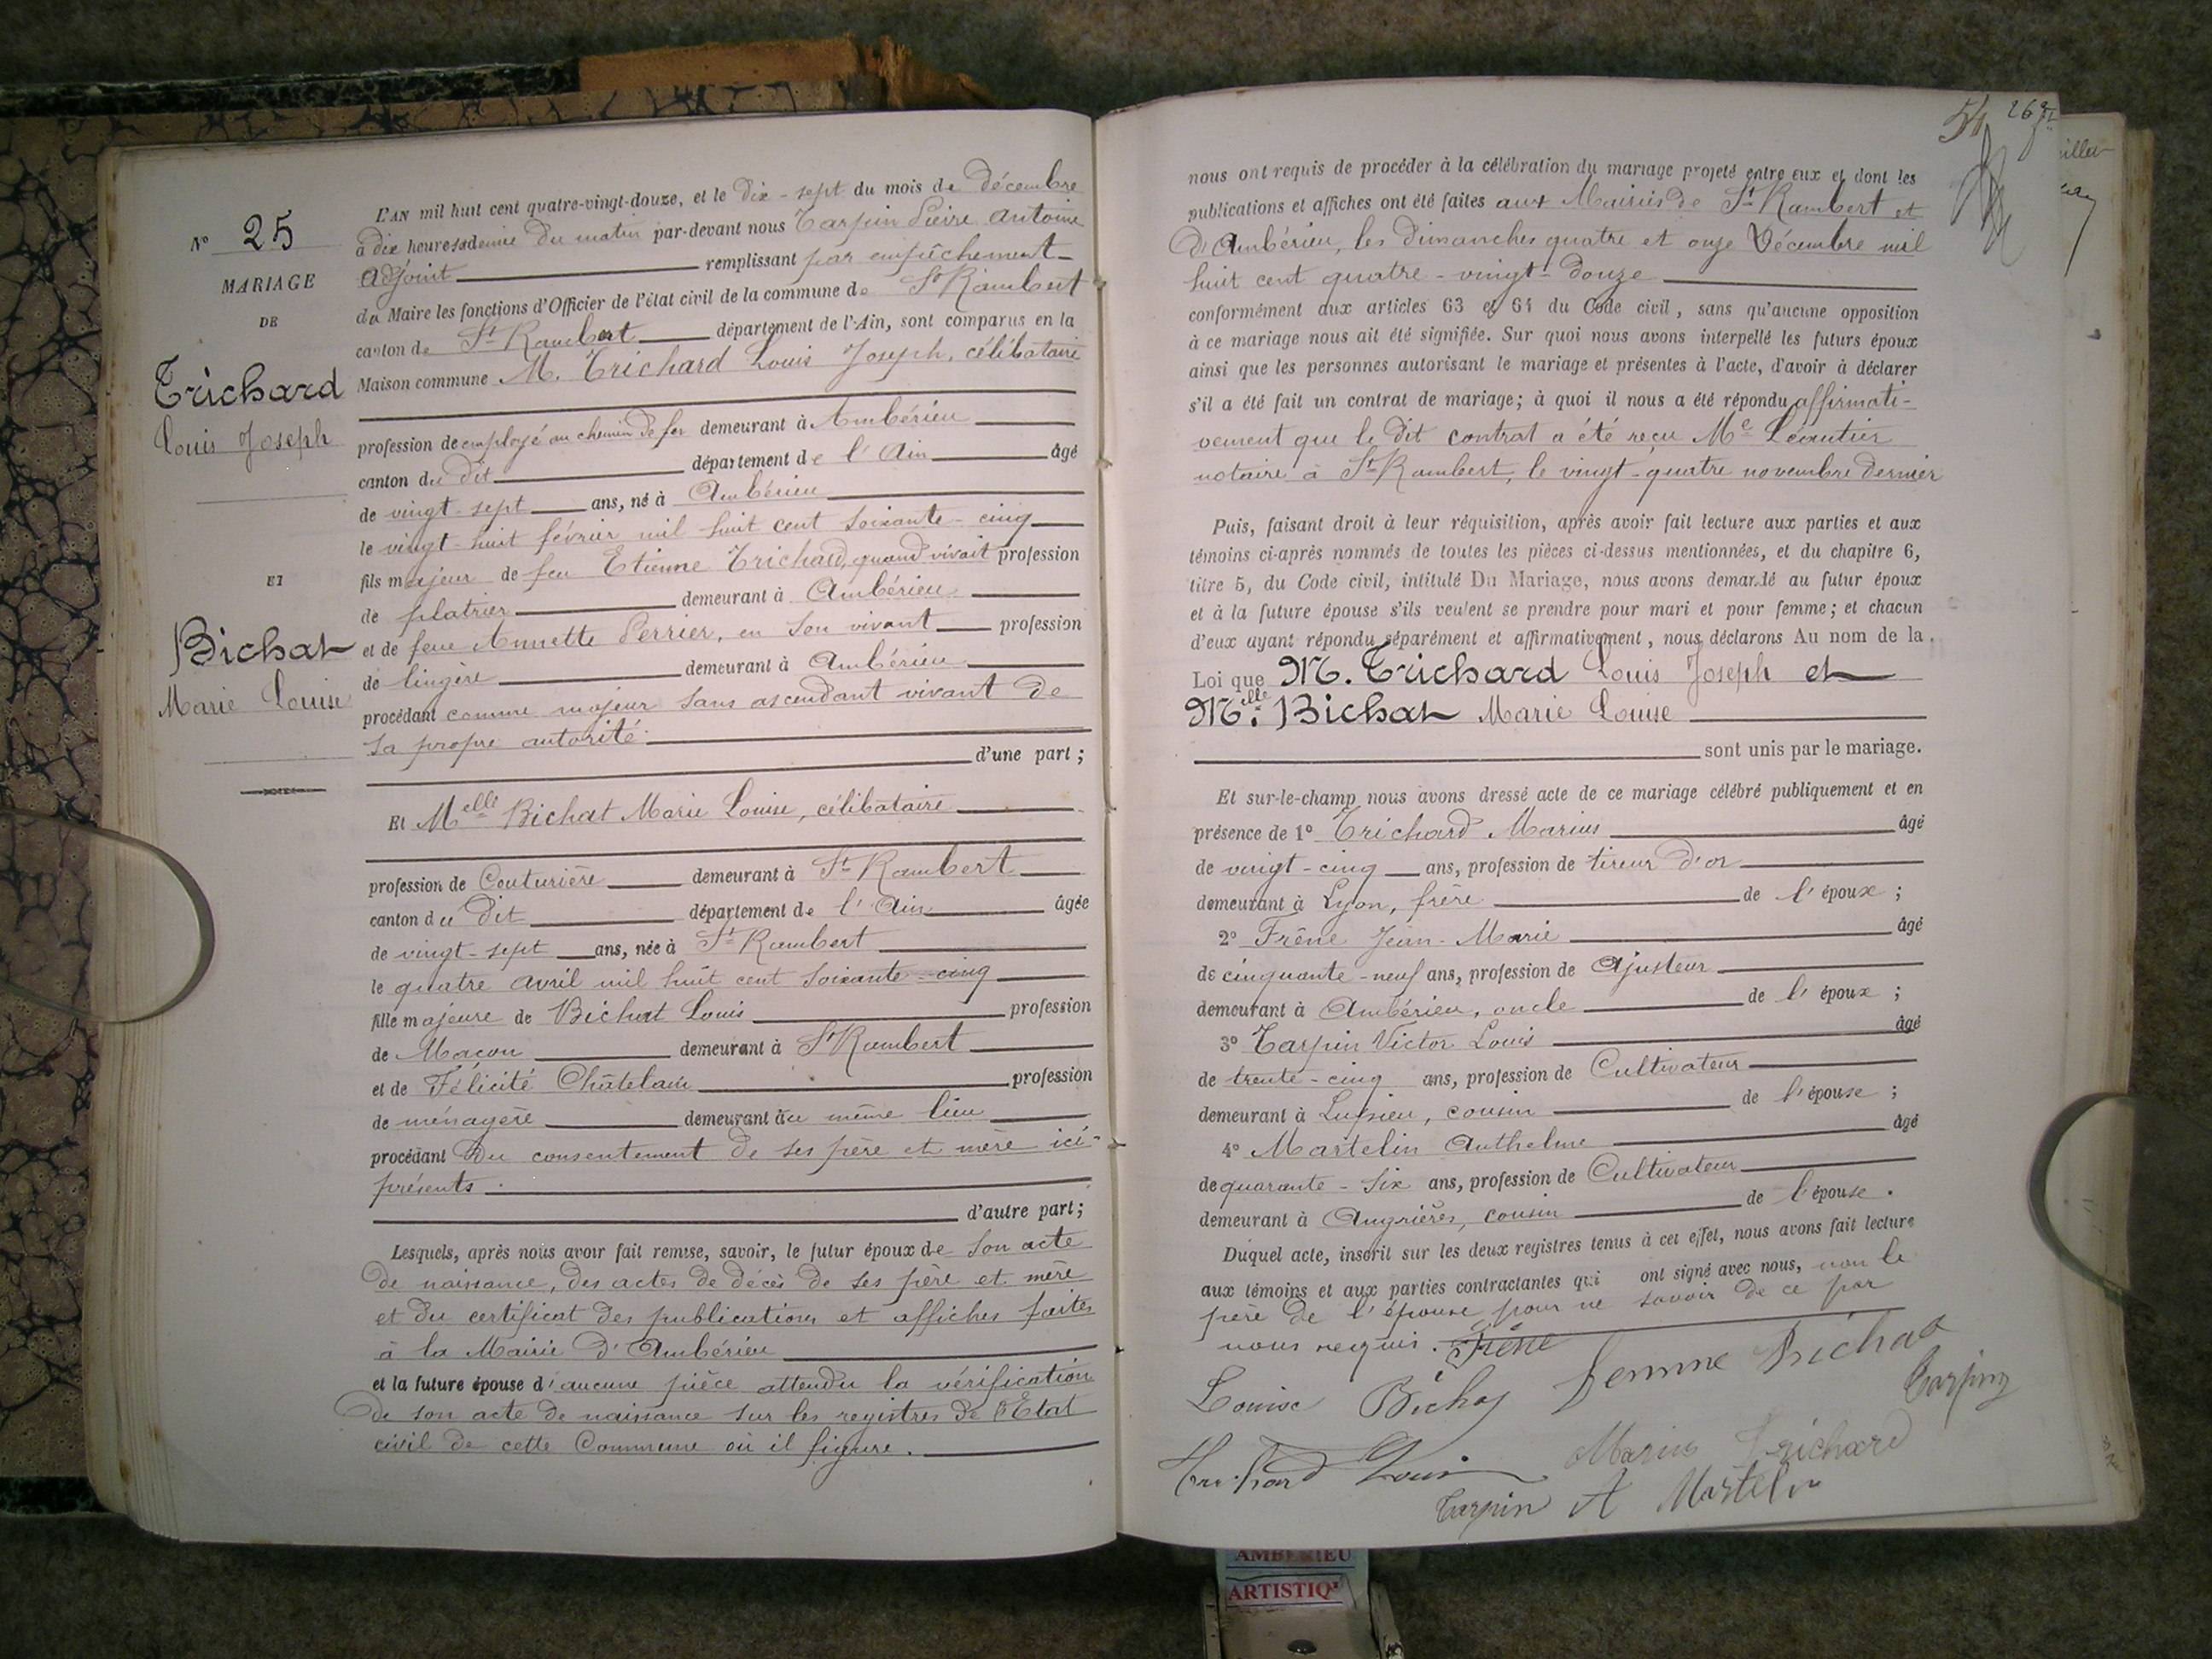 N° 25
MARIAGE
DE
Trichard
Louis Joseph
ET
Bichat
Marie Louise
L'AN mil huit cent quatre-vingt-douze, et le dix-sept du mois de décembre
à dix heures et demie du matin par-devant nous Tarpin Pierre Antoine
adjoint remplissant par empêchement
du Maire les fonctions d'Officier de l'état civil de la commune de St Rambert
canton de St Rambert département de l'Ain, sont comparus en la
Maison commune M. Trichard Louis Joseph, célibataire
profession de employé au chemin de fer demeurant à Ambérieu
canton du dit département de l'Ain âgé
de vingt-sept ans, né à Ambérieu
le vingt-huit février mil huit cent soixante-cinq
fils majeur de feu Etienne Trichard, quand vivait profession
de platrier demeurant à Ambérieu
et de feue Annette Perrier, en son vivant profession
de lingère demeurant à Ambérieu
procédant comme majeur sans ascendant vivant de
sa propre autorité.
d'une part ;
Et Melle Bichat Marie Louise, célibataire
profession de Couturière demeurant à St Rambert
canton du dit département de l'Ain âgée
de vingt-sept ans, née à St Rambert
le quatre avril mil huit cent soixante-cinq
fille majeure de Bichat Louis profession
de Maçon demeurant à St Rambert
et de Félicité Châtelain profession
de ménagère demeurant au même lieu
procédant du consentement de ses père et mère ici-
présents.
d'autre part ;
Lesquels, après nous avoir fait remise, savoir, le futur époux de son acte
de naissance, des actes de décès de ses père et mère
et du certificat des publications et affiches faites
à la Mairie d'Ambérieu
et la future épouse d'aucune pièce attendu la vérification
de son acte de naissance sur les registres de l'Etat
civil de cette Commune où il figure.
54 26
nous ont requis de procéder à la célébration du mariage projeté entre eux et dont les
publications et affiches ont été faites aux Mairies de St Rambert et
d'Ambérieu, les dimanches quatre et onze Décembre mil
huit cent quatre-vingt-douze
conformément aux articles 63 et 64 du Code civil, sans qu'aucune opposition
à ce mariage nous ait été signifiée. Sur quoi nous avons interpellé les futurs époux
ainsi que les personnes autorisant le mariage et présentes à l'acte, d'avoir à déclarer
s'il a été fait un contrat de mariage; à quoi il nous a été répondu affirmati-
vement que le dit contrat a été reçu Me Léautier
notaire à St Rambert, le vingt-quatre novembre dernier
Puis, faisant droit à leur réquisition, après avoir fait lecture aux parties et aux
témoins ci-après nommés de toutes les pièces ci-dessus mentionnées, et du chapitre 6,
titre 5, du Code civil, intitulé Du Mariage, nous avons demandé au futur époux
et à la future épouse s'ils veulent se prendre pour mari et pour femme ; et chacun
d'eux ayant répondu séparément et affirmativement, nous déclarons Au nom de la
Loi que M. Trichard Louis Joseph et
Melle Bichat Marie Louise
sont unis par le mariage.
Et sur-le-champ nous avons dressé acte de ce mariage célébré publiquement et en
présence de 1° Trichard Marius âgé
de vingt-cinq ans, profession de tireur d'or
demeurant à Lyon, frère de l'époux ;
2° Frêne Jean-Marie âgé
de cinquante-neuf ans, profession de Ajusteur
demeurant à Ambérieu, oncle de l'époux ;
3° Tarpin Victor Louis âgé
de trente-cinq ans, profession de Cultivateur
demeurant à Lupieu, cousin de l'épouse ;
4° Martelin Anthelme âgé
de quarante-six ans, profession de Cultivateur
demeurant à Angrières, cousin de l'épouse.
Duquel acte, inscrit sur les deux registres tenus à cet effet, nous avons fait lecture
aux témoins et aux parties contractantes qui ont signé avec nous, non le
père de l'épouse pour ne savoir de ce par
nous requis. Frêne
Louise Bichat femme Bichat
Tarpin
Trichard Louis Marius Trichard
Tarpin A Martelin
AMBERIEU
ARTISTIQ